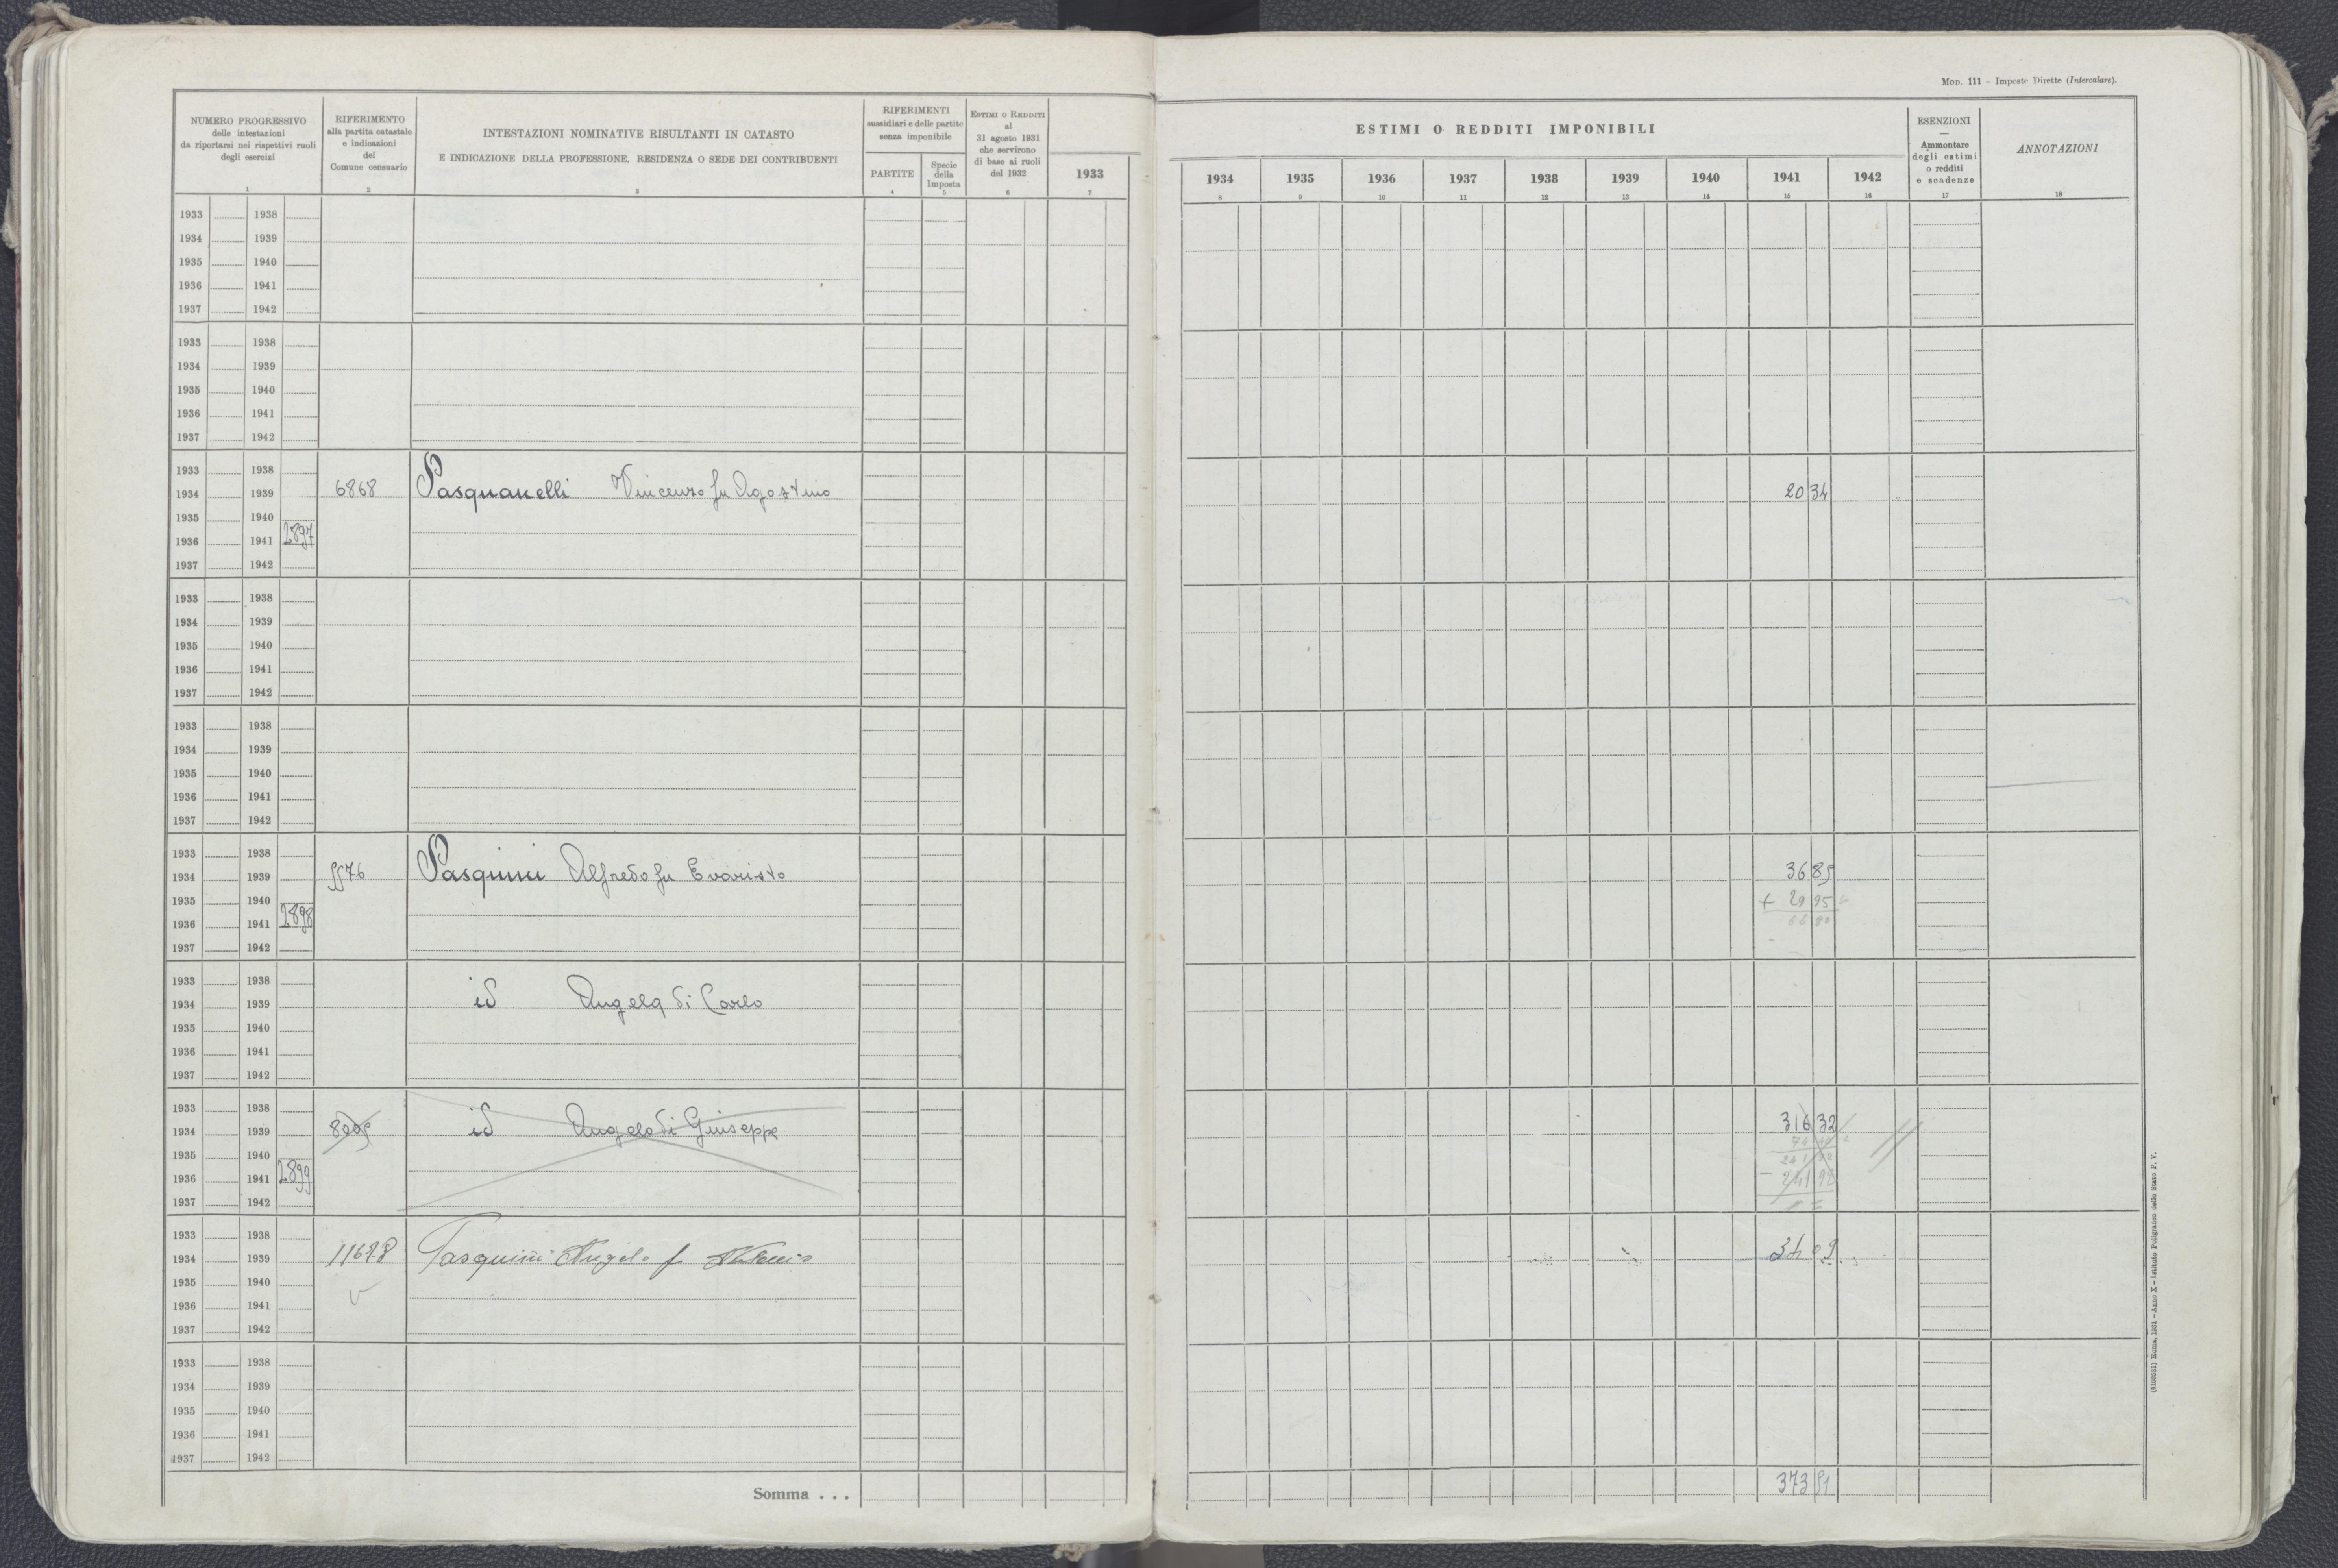 Mod. 111 - Imposte Dirette (Intercalare).
NUMERO PROGRESSIVO
delle intestazioni
da riportarsi nei rispettivi ruoli
degli esercizi
1
RIFERIMENTO
alla partita catastale
e indicazioni
del
Comune censuario
2
INTESTAZIONI NOMINATIVE RISULTANTI IN CATASTO
E INDICAZIONE DELLA PROFESSIONE, RESIDENZA O SEDE DEI CONTRIBUENTI
3
RIFERIMENTI
sussidiari e delle partite
senza imponibile
PARTITE
4
Specie
della
Imposta
5
Estimi o Redditi
al
31 agosto 1931
che servirono
di base ai ruoli
del 1932
6
1933
7
ESTIMI O REDDITI IMPONIBILI
1934 1935 1936 1937 1938 1939 1940 1941 1942
8 9 10 11 12 13 14 15 16
ESENZIONI
—
Ammontare
degli estimi
o redditi
e scadenze
17
ANNOTAZIONI
18
1933 1938
1934 1939
1935 1940
1936 1941
1937 1942
1933 1938
1934 1939
1935 1940
1936 1941
1937 1942
1933 1938
1934 1939 6868 Pasquanelli Vincenzo fu Agostino 20 34
1935 1940
1936 1941 2897
1937 1942
1933 1938
1934 1939
1935 1940
1936 1941
1937 1942
1933 1938
1934 1939
1935 1940
1936 1941
1937 1942
1933 1938
1934 1939 5576 Pasquini Alfredo fu Evaristo 36 85
1935 1940 + 29 95
1936 1941 2898 66 80
1937 1942
1933 1938
1934 1939 id Angela di Carlo
1935 1940
1936 1941
1937 1942
1933 1938
1934 1939 id Angelo di Giuseppe 316 32
1935 1940 241 92
1936 1941 2899 - 241 92
1937 1942
1933 1938
1934 1939 Pasquini Angelo f 34 09
1935 1940
1936 1941
1937 1942
1933 1938
1934 1939
1935 1940
1936 1941
1937 1942
Somma . . . 373 51
(4100551) Roma, 1931 - Anno X - Istituto Poligrafico dello Stato P. V.